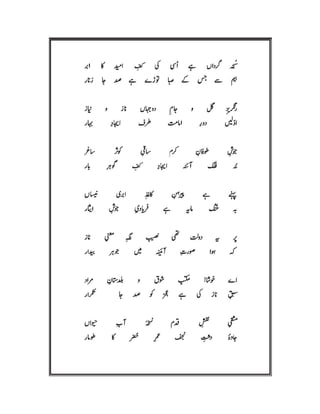 سُبحہ گرداں ہے اُسی کی کفِ امید کا ابر
بیم سے جس کے صبا توڑے ہے صد جا زنار
رنگریزِ گل و جامِ دو جہاں ناز و نیاز
اوّلیں دورِ امامت طرب ایجادِ بہار
جوشِ طوفانِ کرم ساقیِ کوثر ساغر
نہ فلک آئنہ ایجادِ کفِ گوہر بار
پہنے ہے پیرہنِ کاغذِ ابری نیساں
یہ تنک مایہ ہے فریادیِ جوشِ ایثار
پر یہ دولت تھی نصیبِ نگہِ معنیِ ناز
کہ ہوا صورتِ آئینہ میں جوہر بیدار
اے خوشا مکتبِ شوق و بلدستانِ مراد
سبقِ ناز کی ہے عجز کو صد جا تکرار
مشقِ نقشِ قدم نسخۂ آبِ حیواں
جادۂ دشتِ نجف عمرِ خضر کا طومار